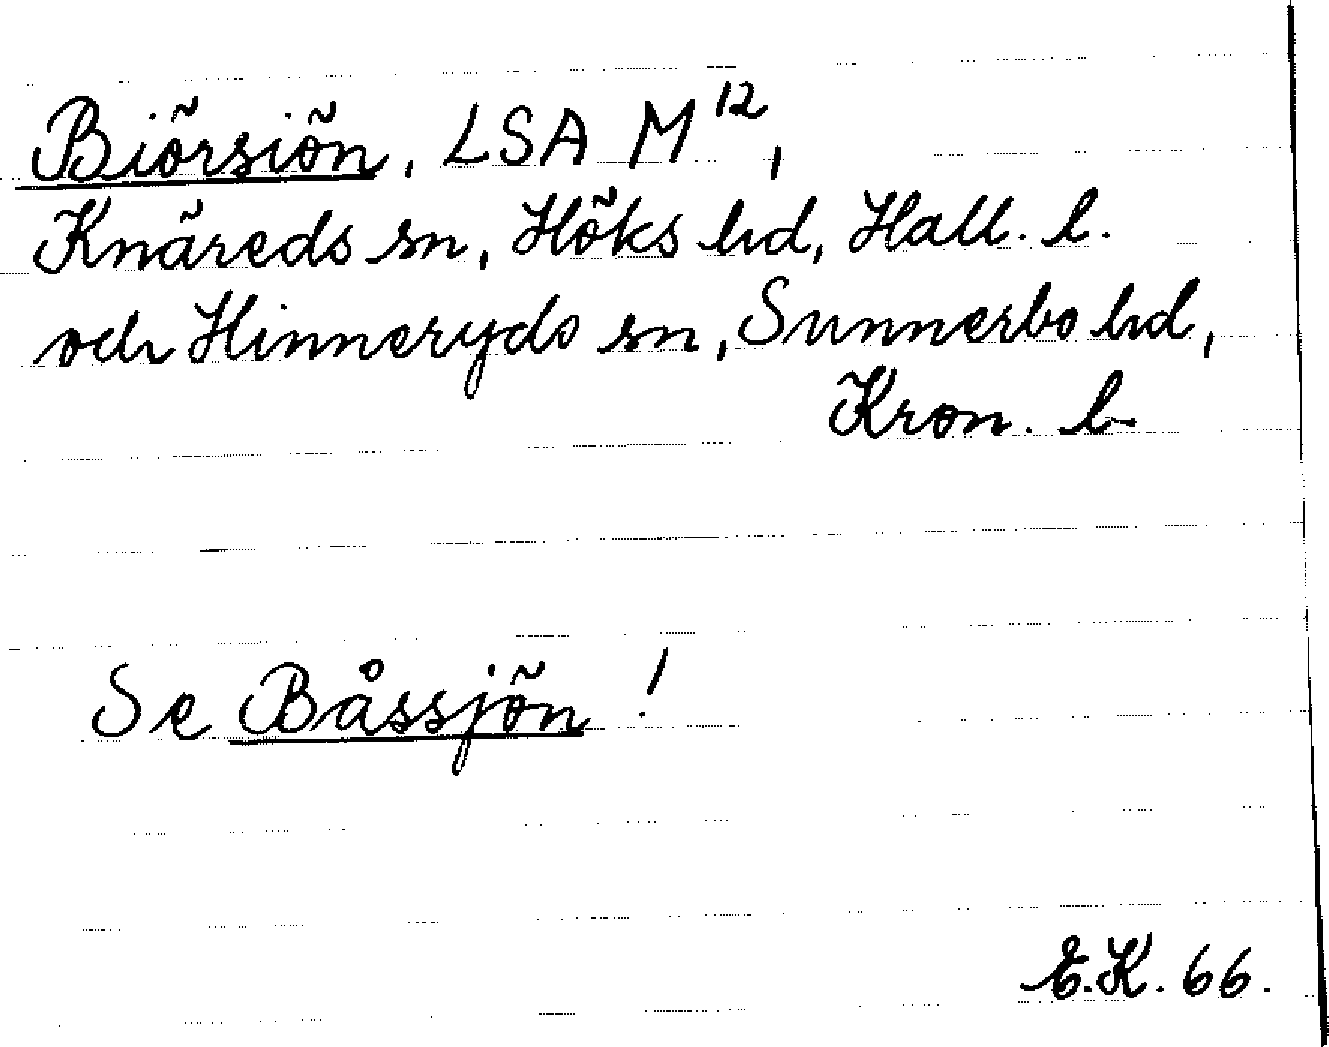 Biörsiön, LSA M¹²,
Knäreds sn, Höks hd, Hall. l.
och Hinneryds sn, Sunnerbo hd,
Kron. l.
Se Båssjön !
E.K. 66.